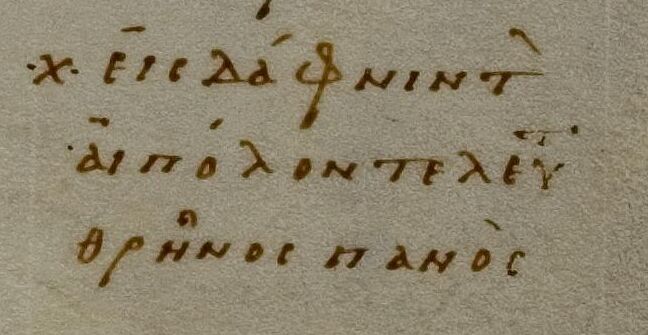 ·χ· εἰς δάφνιν τ̀
αἰπόλον τελευτ
θρῆνος πανὸς